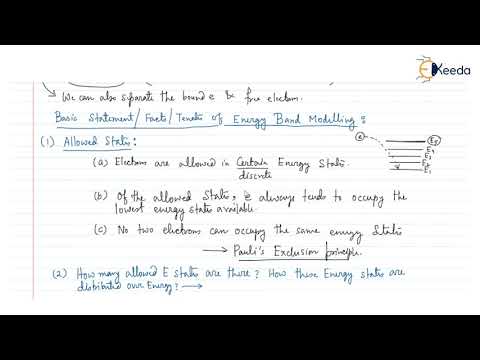 EKeeda
→ We can also separate the bound e & free electron.
Basic Statement/Facts/Tenets of Energy Band Modelling:
(1) Allowed States:
(a) Electrons are allowed in Certain Energy States.
discrete
(b) Of the allowed States, e⁻ always tends to occupy the
lowest energy states available.
(c) No two electrons can occupy the same energy States
→ Pauli's Exclusion principle.
(2) How many allowed E states are there? How these Energy states are
distributed over Energy? →
e
E₁